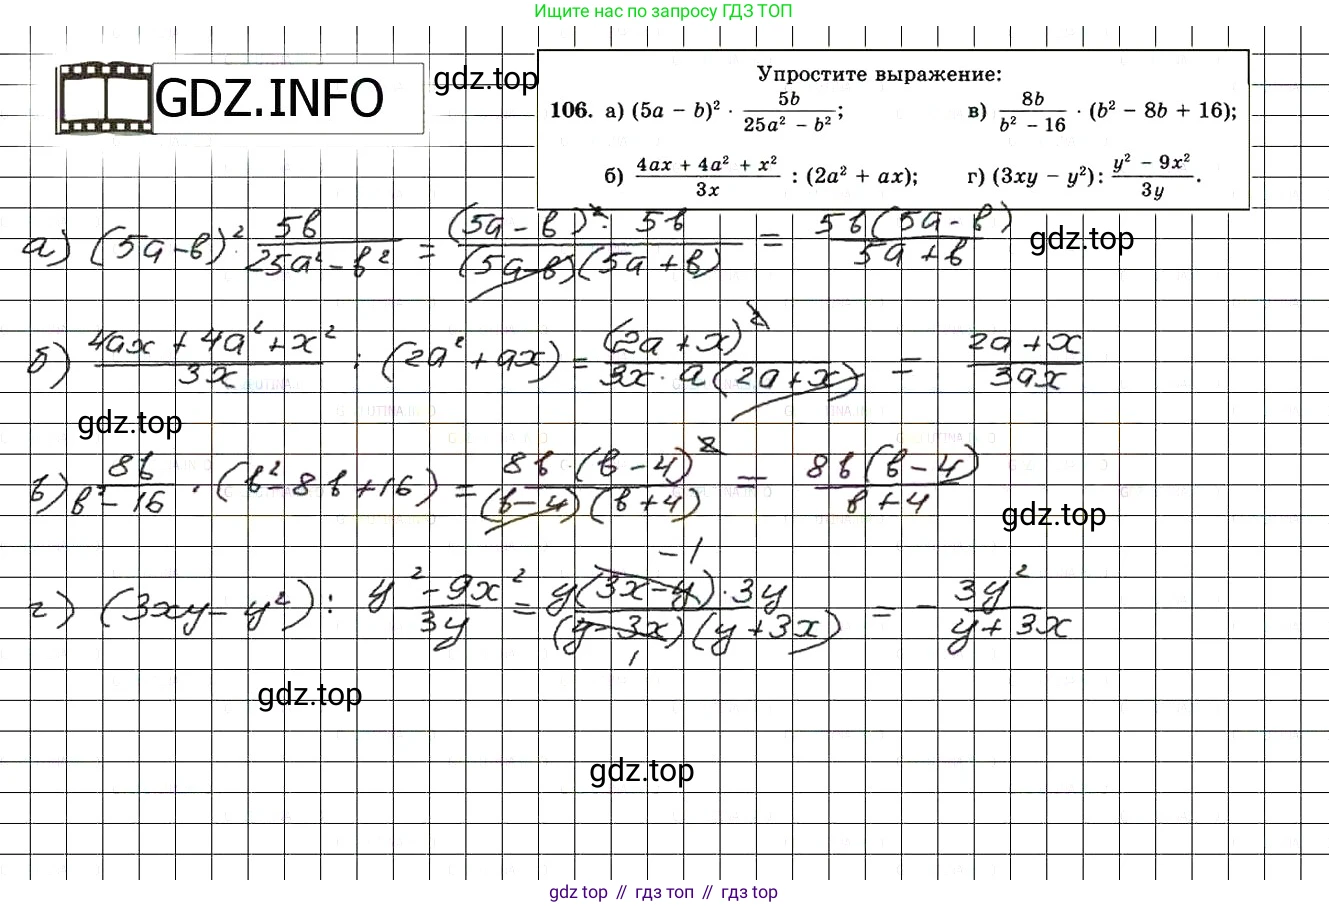 Ищите нас по запросу ГДЗ ТОП
GDZ.INFO
gdz.top
Упростите выражение:
106. а) (5a − b)² · 5b / (25a² − b²); в) 8b / (b² − 16) · (b² − 8b + 16);
б) (4ax + 4a² + x²) / 3x : (2a² + ax); г) (3xy − y²) : (y² − 9x²) / 3y.
а) (5a−b)² · 5b / (25a²−b²) = (5a−b)² · 5b / (5a−b)(5a+b) = 5b(5a−b) / 5a+b
gdz.top
б) 4ax + 4a² + x² / 3x : (2a² + ax) = (2a+x)² / 3x · a(2a+x) = 2a+x / 3ax
gdz.top
в) 8b / b²−16 · (b²−8b+16) = 8b·(b−4)² / (b−4)(b+4) = 8b(b−4) / b+4
gdz.top
−1
г) (3xy−y²) : y²−9x² / 3y = y(3x−y)·3y / (y−3x)(y+3x) = − 3y² / y+3x
1
gdz.top
gdz.top
gdz top // гдз топ // gdz top